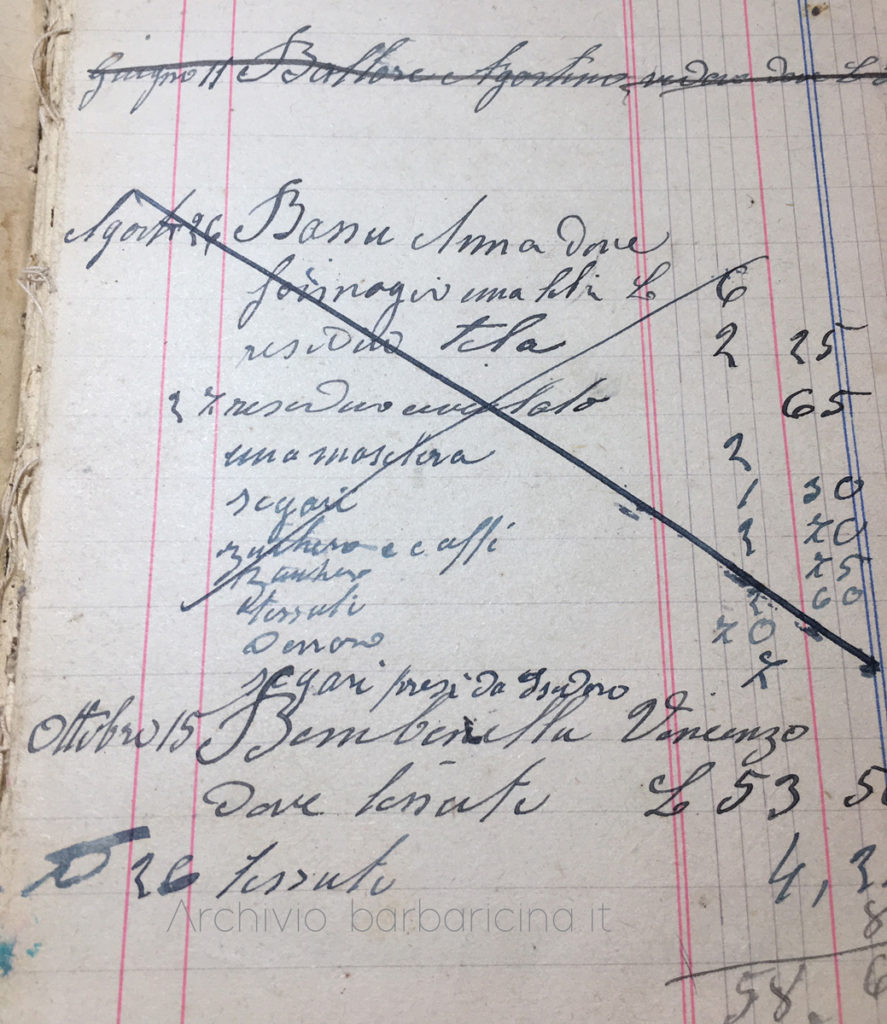 Giugno 11 Battore Agostino residuo dare L
Agosto 26 Bassu Anna Dare
formagio una L 6
residuo tela 2 25
27 residuo 65
una maschera 2
segari 1 30
zuchero e caffi 2 70
Zuchero 75
tessuti 2 60
Denaro 70
segari presi da Isidoro 7
Ottobre 15 Bembenella Vincenzo
Dare tessuti L 53 50
D 26 tessuti 4,
8
58. 6
Archivio barbaricina it